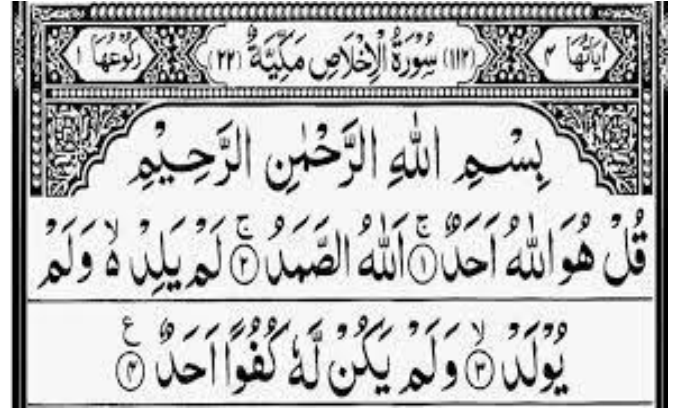 اٰيَاتُهَا ٤ (١١٢) سُوْرَةُ الْاِخْلَاصِ مَكِّيَّةٌ (٢٢) رُكُوْعُهَا ١
بِسْمِ اللّٰهِ الرَّحْمٰنِ الرَّحِيْمِ
قُلْ هُوَ اللّٰهُ اَحَدٌۚ ۝١ اَللّٰهُ الصَّمَدُۚ ۝٢ لَمْ يَلِدْ ۙ۬ وَلَمْ
يُوْلَدْۙ ۝٣ وَلَمْ يَكُنْ لَّهٗ كُفُوًا اَحَدٌ۠ ۝٤ ع